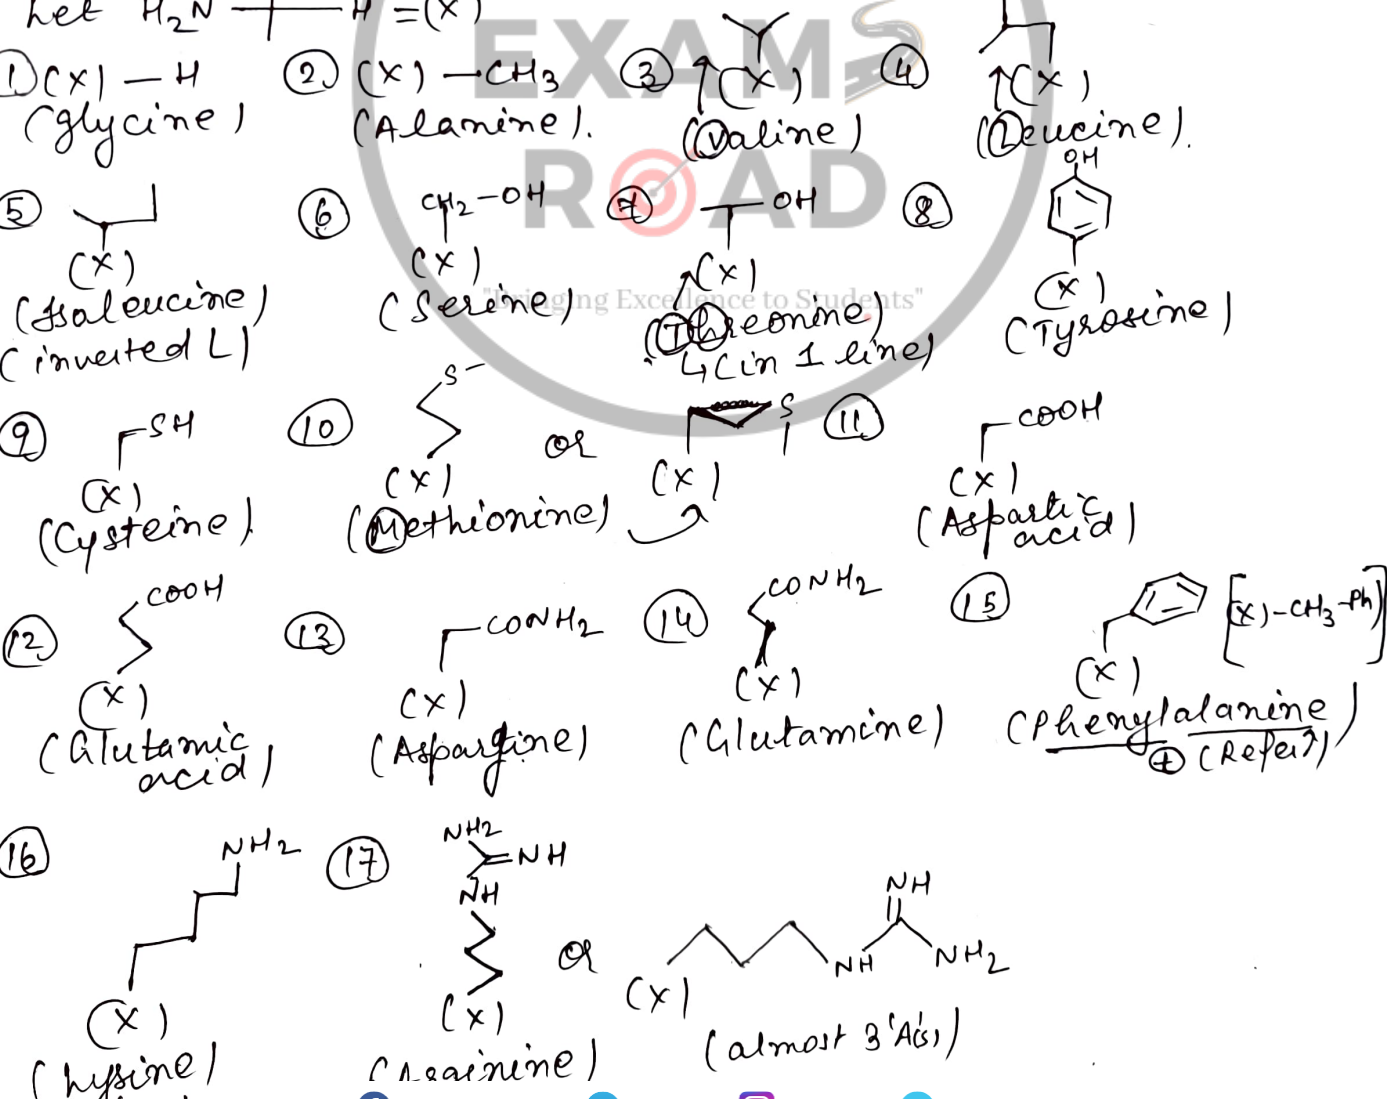 Let H2N H = (X)
EXAM
ROAD
"Bringing Excellence to Students"
1 (X) — H
(Glycine)
2 (X) — CH3
(Alanine).
3 (X)
(Valine)
4 (X)
(Leucine).
5 (X)
(Isoleucine)
(inverted L)
6 CH2-OH
(X)
(Serine)
7 OH
(X)
(Threonine)
↳ (in 1 line)
8 OH
(X)
(Tyrosine)
9 SH
(X)
(Cysteine).
10 S
(X)
or
S
(X)
(Methionine)
11 COOH
(X)
(Aspartic
acid)
12 COOH
(X)
(Glutamic
acid)
13 CONH2
(X)
(Aspargine)
14 CONH2
(X)
(Glutamine)
15 (X)
[(X)-CH3-Ph]
(Phenylalanine)
+ (Refer↑)
16 NH2
(X)
(Lysine)
17 NH2
=NH
NH
(X)
or
NH
NH NH2
(X)
(Arginine)
(almost 3 'A's)